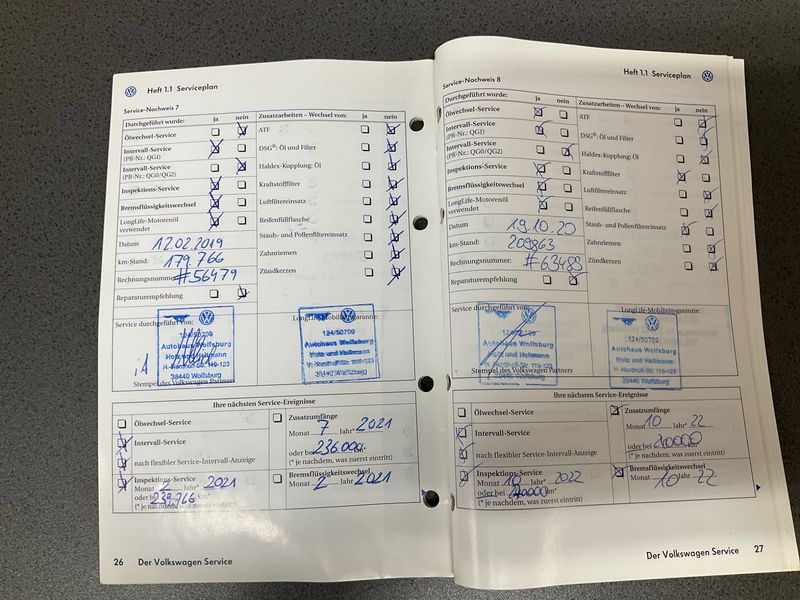 Heft 1.1 Serviceplan
Service-Nachweis 7
Durchgeführt wurde: ja nein
Ölwechsel-Service
Intervall-Service
(PR-Nr.: QG1)
Intervall-Service
(PR-Nr.: QG0/QG2)
Inspektions-Service
Bremsflüssigkeitswechsel
LongLife-Motorenöl
verwendet
Datum 12.02.2019
km-Stand: 179.766
Rechnungsnummer: #56479
Reparaturempfehlung
Zusatzarbeiten – Wechsel von: ja nein
ATF
DSG®: Öl und Filter
Haldex-Kupplung: Öl
Kraftstofffilter
Luftfiltereinsatz
Reifenfüllflasche
Staub- und Pollenfiltereinsatz
Zahnriemen
Zündkerzen
Service durchgeführt von:
124/50709
Autohaus Wolfsburg
Hotz und Heitmann
H.-Nordhoff-Str. 119-123
38440 Wolfsburg
i.A
Stempel des Volkswagen Partners
LongLife-Mobilitätsgarantie:
124/50709
Autohaus Wolfsburg
Hotz und Heitmann
H.-Nordhoff-Str. 119-123
38440 Wolfsburg
Ihre nächsten Service-Ereignisse
Ölwechsel-Service
Intervall-Service
nach flexibler Service-Intervall-Anzeige
Inspektions-Service
Monat 2 Jahr* 2021
oder bei 239.766 km*
(* je nachdem, was zuerst eintritt)
Zusatzumfänge
Monat 7 Jahr* 2021
oder bei
(* je nachdem, was zuerst eintritt)
Bremsflüssigkeitswechsel
Monat 2 Jahr 2021
26 Der Volkswagen Service
Heft 1.1 Serviceplan
Service-Nachweis 8
Durchgeführt wurde: ja nein
Ölwechsel-Service
Intervall-Service
(PR-Nr.: QG1)
Intervall-Service
(PR-Nr.: QG0/QG2)
Inspektions-Service
Bremsflüssigkeitswechsel
LongLife-Motorenöl
verwendet
Datum 19.10.20
km-Stand: 209863
Rechnungsnummer:
Reparaturempfehlung
Zusatzarbeiten – Wechsel von: ja nein
ATF
DSG®: Öl und Filter
Haldex-Kupplung: Öl
Kraftstofffilter
Luftfiltereinsatz
Reifenfüllflasche
Staub- und Pollenfiltereinsatz
Zahnriemen
Zündkerzen
Service durchgeführt von:
Autohaus Wolfsburg
Hotz und Heitmann
H.-Nordhoff-Str. 119-123
38440 Wolfsburg
Stempel des Volkswagen Partners
LongLife-Mobilitätsgarantie:
124/50709
Autohaus Wolfsburg
Hotz und Heitmann
H.-Nordhoff-Str. 119-123
38440 Wolfsburg
Ihre nächsten Service-Ereignisse
Ölwechsel-Service
Intervall-Service
nach flexibler Service-Intervall-Anzeige
Inspektions-Service
Monat 10 Jahr* 2022
oder bei km*
(* je nachdem, was zuerst eintritt)
Zusatzumfänge
Monat 10 Jahr* 22
oder bei
(* je nachdem, was zuerst eintritt)
Bremsflüssigkeitswechsel
Monat 10 Jahr 22
Der Volkswagen Service 27